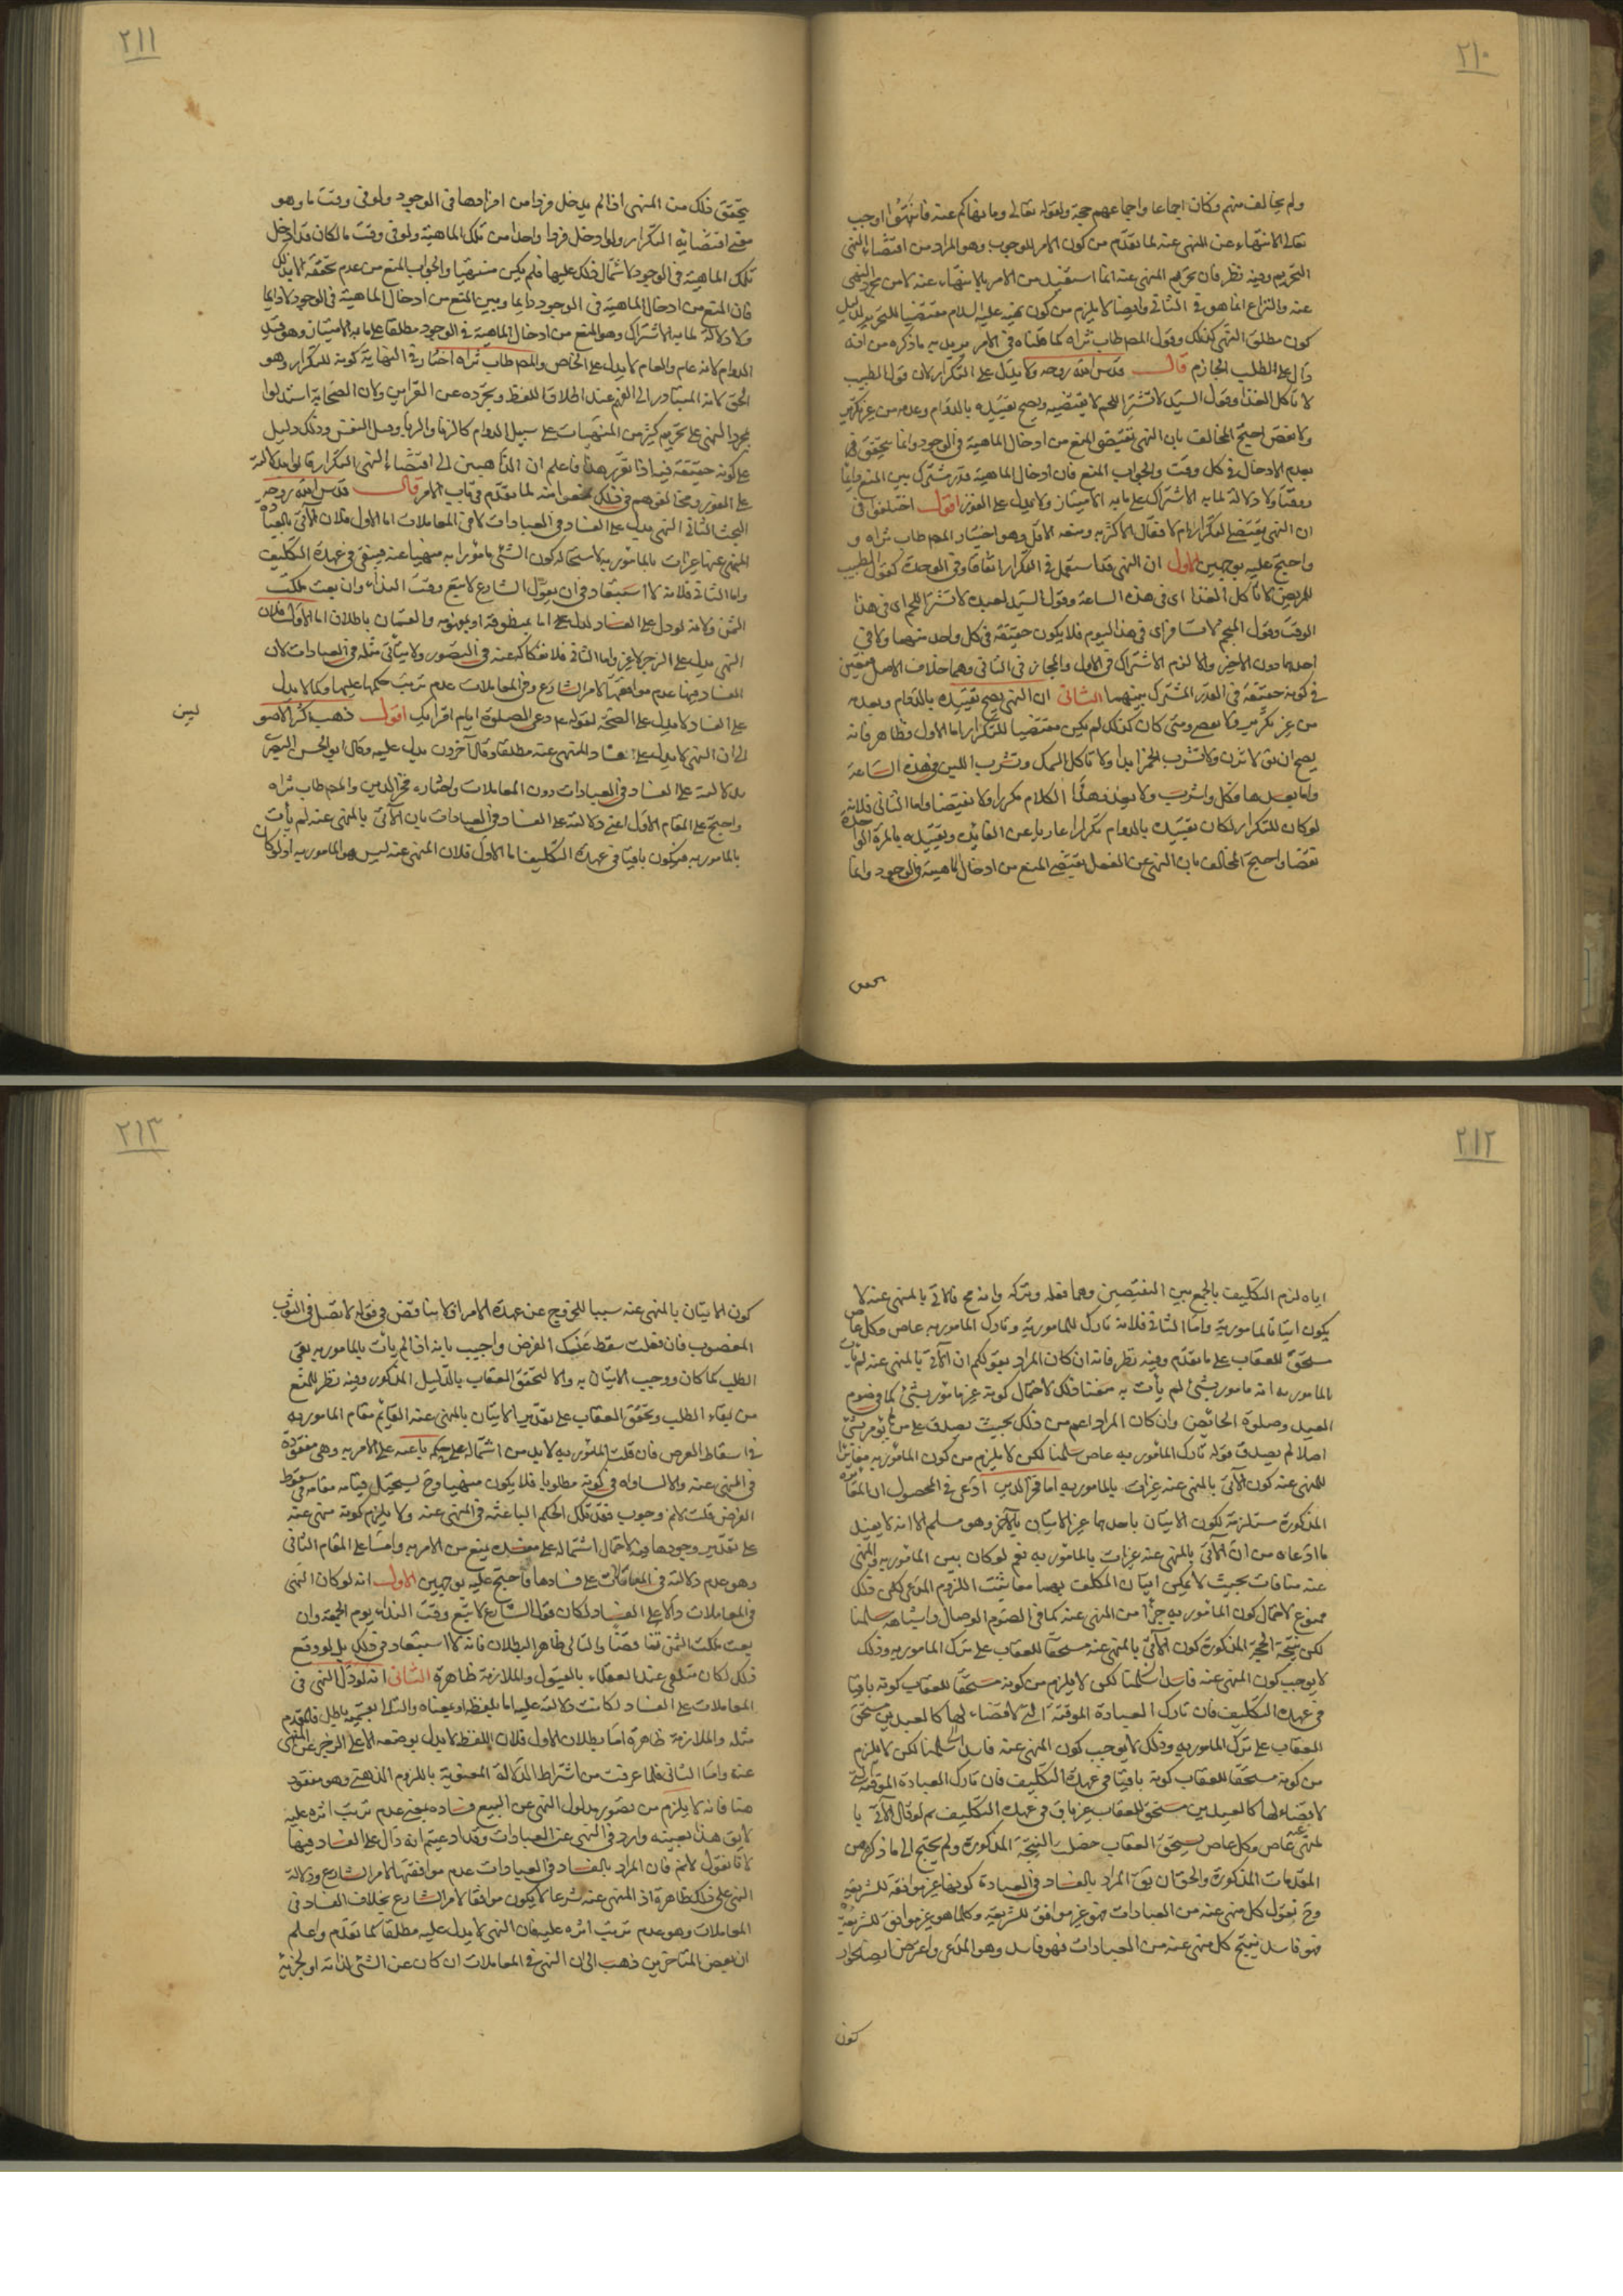 ٢١٠
ولم يخالف منهم وكان اجماعا واجماعهم حجة ولقوله تعالى وما نهاكم عنه فانتهوا اوجب
تعالى الانتهاء عن المنهى عنه لما تقدم من كون الامر للوجوب وهو المراد من اقتضاء النهى
التحريم وفيه نظر فان تحريم المنهى عنه انما استفيد من الامر بالانتهاء عنه لا من مجرد النهى
عنه والنزاع انما هو فى الثانى وايضا لا يلزم من كون نهيه عليه السلام مقتضيا للتحريم لدليل
كون مطلق النهى كذلك وقول المص طاب ثراه كما قلناه فى الامر يريد به ما ذكره من انه
دال على الطلب الجازم قال قدس الله روحه ولا يدل على التكرار لان قول الطبيب
لا تأكل الغذا وقول السيد لا تشتر اللحم لا يقتضيه ويصح تقييده بالدوام وعدمه من غير تكرير
ولا نقض احتج المخالف بان النهى يقتضى المنع من ادخال الماهية فى الوجود وانما يتحقق
بعدم الادخال فى كل وقت والجواب المنع فان ادخال الماهية قدر مشترك بين المنع دايما
ووقتا ولا دلالة لما به الاشتراك على ما به الامتياز ولا يدل على الفور اقول اختلفوا فى
ان النهى يقتضى التكرار ام لا فقال الاكثر به ومنعه الاقل وهو اختيار المص طاب ثراه و
واحتج عليه بوجهين الاول ان النهى قد استعمل فى التكرار اتفاقا وفى الوحدة كقول الطبيب
للمريض لا تأكل الغذا اى فى هذه الساعة وقول السيد لعبده لا تشتر اللحم اى فى هذا
الوقت وقول المنجم لا تسافر اى فى هذا اليوم فلا يكون حقيقة فى كل واحد منهما ولا فى
احدهما دون الاخر والا لزم الاشتراك فى الاول والمجاز فى الثانى وهما خلاف الاصل فتعين
فى كونه حقيقة فى القدر المشترك بينهما الثانى ان النهى يصح تقييده بالدوام وبعدمه
من غير تكرير ولا نقض ومتى كان كذلك لم يكن مقتضيا للتكرار اما الاول فظاهر فانه
يصح ان يق لا تزن ولا تشرب الخمر ابدا ولا تأكل السمك وتشرب اللبن فى هذه الساعة
واما بعدها فكل واشرب ولا يعد هذا الكلام مكررا ولا نقيضا واما الثانى فلانه
لو كان للتكرار لكان تقييده بالدوام تكرارا عاريا عن الفائدة وتقييده بالمرة الواحدة
نقضا واحتج المخالف بان النهى عن الفعل يقتضى المنع من ادخال الماهية فى الوجود وانما
يتحقق
٢١١
يتحقق ذلك من المنهى اذا لم يدخل فردا من افرادها فى الوجود ولو فى وقت ما وهو
معنى اقتضائه التكرار ولو ادخل فردا واحدا من تلك الماهية ولو فى وقت ما لكان قد ادخل
تلك الماهية فى الوجود لاشتمال ذلك عليها فلم يكن منتهيا والجواب المنع من عدم تحققه الا بذلك
فان المنع من ادخال الماهية فى الوجود دايما وبين المنع من ادخال الماهية فى الوجود لا دايما
ولا دلالة لما به الاشتراك وهو المنع من ادخال الماهية فى الوجود مطلقا على ما به الامتياز وهو قيد
الدوام لانه عام والعام لا يدل على الخاص والمص طاب ثراه اختار فى النهاية كونه للتكرار وهو
الحق لانه المتبادر الى الفهم عند اطلاق اللفظ وتجرده عن القراين ولان الصحابة استدلوا
بمجرد النهى على تحريم كثير من المنهيات على سبيل الدوام كالزنا والربا وقتل النفس وذلك دليل
على كونه حقيقة فيه اذا تقرر هذا فاعلم ان الذاهبين الى اقتضاء النهى التكرار قالوا بدلالته
على الفور ومخالفوهم فى ذلك منعوا منه لما تقدم فى باب الامر قال قدس الله روحه
البحث الثانى النهى يدل على الفساد فى العبادات لا فى المعاملات اما الاول فلان الآتى بالعبادة
المنهى عنها غير آت بالمأمور به لاستحالة كون الشئ مأمورا به منهيا عنه فيبقى فى عهدة التكليف
واما الثانى فلانه لا استبعاد فى ان يقول الشارع لا تبع وقت النداء وان بعت ملكت
الثمن ولانه لو دل على الفساد لدل عليه اما بمنطوقه او بمفهومه والقسمان باطلان اما الاول فلان
النهى يدل على الزجر لا غير واما الثانى فلانفكاكه عنه فى التصور ولا يتأتى مثله فى العبادات لان
الفساد فيها عدم موافقتها لامر الشارع وفى المعاملات عدم ترتب حكمها عليها وكما لا يدل
على الفساد لا يدل على الصحة لقوله ع دعى الصلوة ايام اقرائك اقول ذهب اكثر الاصو
ليين
الى ان النهى لا يدل على فساد المنهى عنه مطلقا وقال آخرون يدل عليه وقال ابو الحسن البصرى
بدلالته على الفساد فى العبادات دون المعاملات واختاره فخر الدين والمص طاب ثراه
واحتج على المقام الاول اعنى دلالته على الفساد فى العبادات بان الآتى بالمنهى عنه لم يأت
بالمأمور به فيكون باقيا فى عهدة التكليف اما الاول فلان المنهى عنه ليس هو المأمور به اذ لو كان
٢١٢
اياه لزم التكليف بالجمع بين النقيضين وهما فعله وتركه وانه مح فالآتى بالمنهى عنه لا
يكون اتيا بالمأمور به واما الثانى فلانه تارك للمأمور به وتارك المأمور به عاص وكل عاص
مستحق للعقاب على ما تقدم وفيه نظر فانه ان كان المراد بقولكم ان الآتى بالمنهى عنه لم يأت
بالمأمور به انه مأمور بشئ لم يأت به منعنا ذلك لاحتمال كونه غير مأمور بشئ كما فى صوم
العيد وصلوة الحائض وان كان المراد اعم من ذلك بحيث يصدق على من لم يؤمر بشئ
اصلا لم يصدق قوله تارك المأمور به عاص سلمنا لكن لا يلزم من كون المأمور به مغايرا
للمنهى عنه كون الآتى بالمنهى عنه غير آت بالمأمور به اما فخر الدين ادعى فى المحصول ان المغايرة
المذكورة مستلزمة لكون الاتيان باحدهما غير الاتيان بالآخر وهو مسلم الا انه لا يفيد
ما ادعاه من ان الآتى بالمنهى عنه غير آت بالمأمور به نعم لو كان بين المأمور به والمنهى
عنه منافات بحيث لا يمكن اتيان المكلف بهما معا يثبت اللزوم المدعى لكن ذلك
ممنوع لاحتمال كون المأمور به جزأ من المنهى عنه كما فى الصوم الوصال واشباهه سلمنا
لكن نتيجة الحجة المذكورة كون الآتى بالمنهى عنه مستحقا للعقاب على ترك المأمور به وذلك
لا يوجب كون المنهى عنه فاسدا سلمنا لكن لا يلزم من كونه مستحقا للعقاب كونه باقيا
فى عهدة التكليف فان تارك العبادة الموقتة التى لا قضاء لها كالعيدين مستحق
للعقاب على ترك المأمور به وذلك لا يوجب كون المنهى عنه فاسدا سلمنا لكن لا يلزم
من كونه مستحقا للعقاب كونه باقيا فى عهدة التكليف فان تارك العبادة الموقتة التى
لا قضاء لها كالعيدين مستحق للعقاب غير باق فى عهدة التكليف ثم لو قال الآتى با
لمنهى عنه عاص وكل عاص يستحق العقاب حصلت النتيجة المذكورة ولم يحتج الى ما ذكره من
المقدمات المذكورة والحق ان يق المراد بالفساد فى العبادة كونها غير موافقة للشريعة
وح نقول كل منهى عنه من العبادات فهو غير موافق للشريعة وكلما هو غير موافق للشريعة
فهو فاسد ينتج كل منهى عنه من العبادات فهو فاسد وهو المدعى واعترض ايضا بجواز
كون
٢١٣
كون الاتيان بالمنهى عنه سببا للخروج عن عهدة الامر اذ لا يناقض فى قوله لا تصل فى الثوب
المغصوب فان فعلت سقط عنك الفرض واجيب بانه اذا لم يأت بالمأمور به بقى
الطلب كما كان ووجب الاتيان به والا لتحقق العقاب بالدليل المذكور وفيه نظر للمنع
من بقاء الطلب وتحقق العقاب على تقدير الاتيان بالمنهى عنه القائم مقام المأمور به
فى اسقاط الفرض فان قلت المأمور به لا بد من اشتماله على حكمة باعثه على الامر به وهى مفقودة
فى المنهى عنه والا لساواه فى كونه مطلوبا فلا يكون منهيا وح يستحيل قيامه مقامه فى سقوط
الفرض قلت لانم وجوب فقد تلك الحكم الباعثه فى المنهى عنه ولا يلزم كونه منهى عنه
على تقدير وجودها فيه لاحتمال اشتماله على مفسدة يمنع من الامر به واما على المقام الثانى
وهو عدم دلالته فى المعاملات على فسادها فاحتج عليه بوجهين الاول انه لو كان النهى
فى المعاملات دالا على الفساد لكان قول الشارع لا تبع وقت النداء يوم الجمعة وان
بعت ملكت الثمن تناقضا والتالى ظاهر البطلان فانه لا استبعاد فى ذلك بل لو وقع
ذلك لكان متلقى عند العقلاء بالقبول والملازمة ظاهرة الثانى انه لو دل النهى فى
المعاملات على الفساد لكانت دلالته عليه اما بلفظه او بمعناه والتالى بقسميه باطل فالمقدم
مثله والملازمة ظاهرة اما بطلان الاول فلان اللفظ لا يدل بوضعه الا على الزجر عن المنهى
عنه واما الثانى فلما عرفت من اشتراط الدلالة المعنوية باللزوم الذهنى وهو مفقود
هنا فانه لا يلزم من تصور مدلول النهى عن البيع فساده بمعنى عدم ترتب اثره عليه
لا يق هذا بعينه وارد فى النهى عن العبادات وقد ادعيتم انه دال على الفساد فيها
لانا نقول لانم فان المراد بالفساد فى العبادات عدم موافقتها لامر الشارع ودلالة
النهى على ذلك ظاهرة اذ المنهى عنه شرعا لا يكون موافقا لامر الشارع بخلاف الفساد فى
المعاملات وهو عدم ترتب اثره عليه فان النهى لا يدل عليه مطلقا كما تقدم واعلم
ان بعض المتأخرين ذهب الى ان النهى فى المعاملات ان كان عن الشئ لذاته او لجزئه